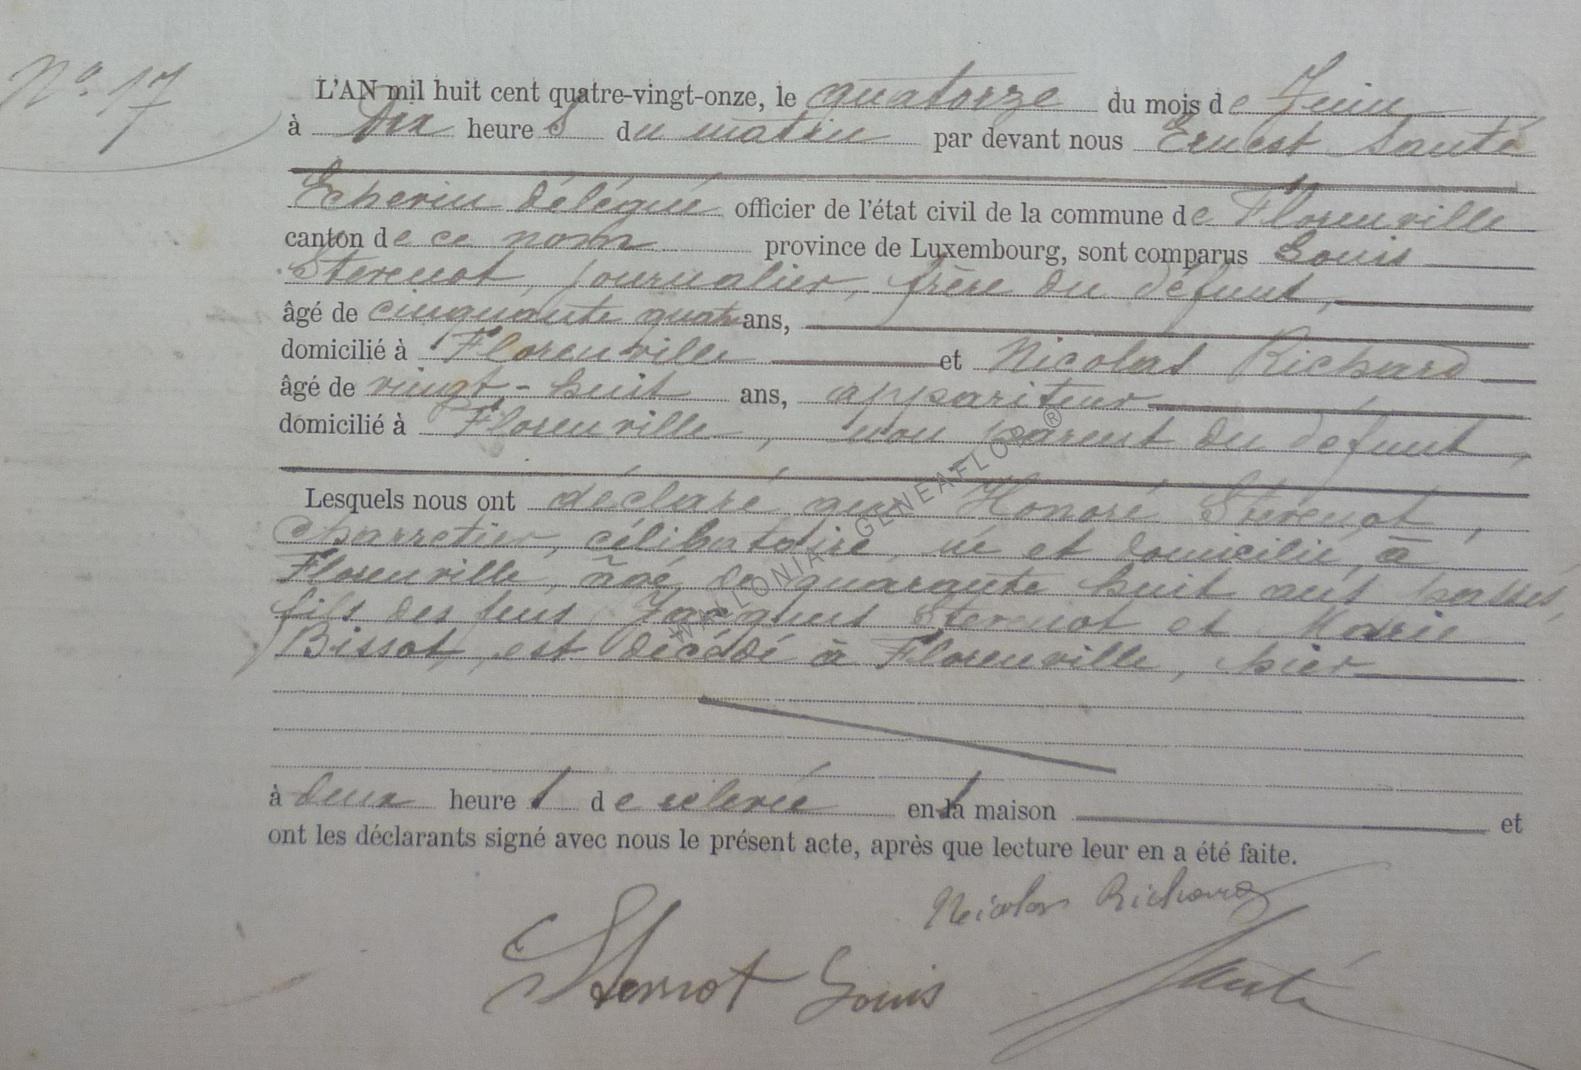 N° 17
L'AN mil huit cent quatre-vingt-onze, le quatorze du mois de Juin
à Dix heures du matin par devant nous Ernest Santé
Echevin délégué officier de l'état civil de la commune de Florenville
canton de ce nom province de Luxembourg, sont comparus Louis
Sterenot, journalier, frère du défunt,
âgé de cinquante quatre ans,
domicilié à Florenville et Nicolas Richard
âgé de vingt-huit ans, appariteur
domicilié à Florenville, non parent du défunt,
Lesquels nous ont déclaré que Honoré Sterenot,
charretier, célibataire, né et domicilié à
Florenville, âgé de quarante huit ans passés,
fils des feus Jacques Sterenot et Marie
Bissot, est décédé à Florenville, hier
à deux heures de relevée en la maison et
ont les déclarants signé avec nous le présent acte, après que lecture leur en a été faite.
Nicolas Richard
Sternot Louis Santé
WALLONIA GENEAFLOR ®